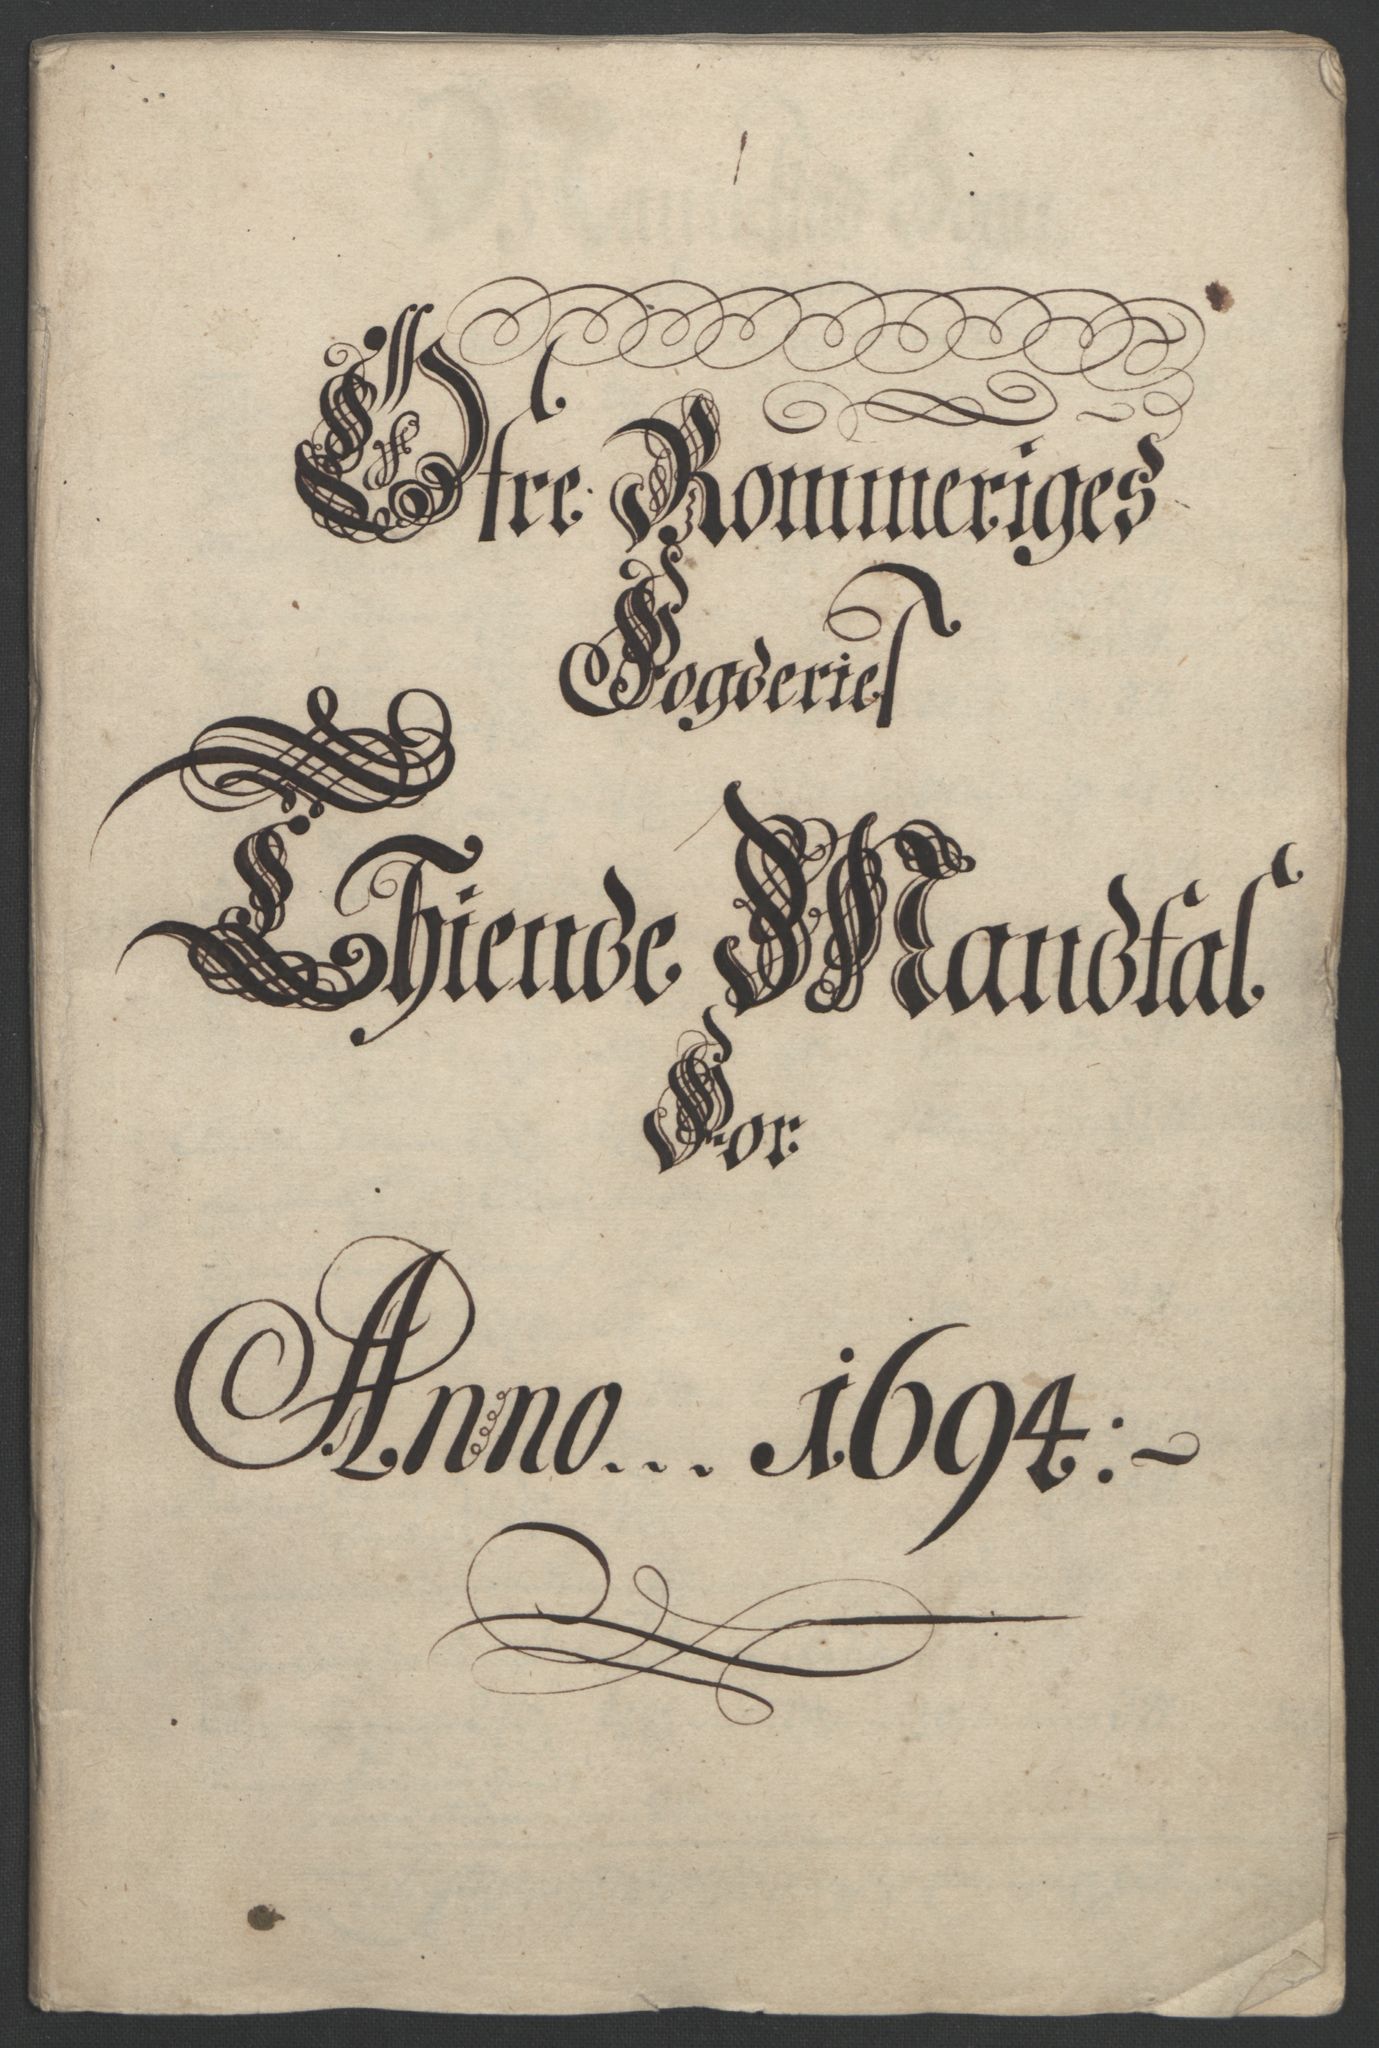 Öfre Rommeriges
Fogderies
Thiende Mandtal
For
Anno... 1694:~